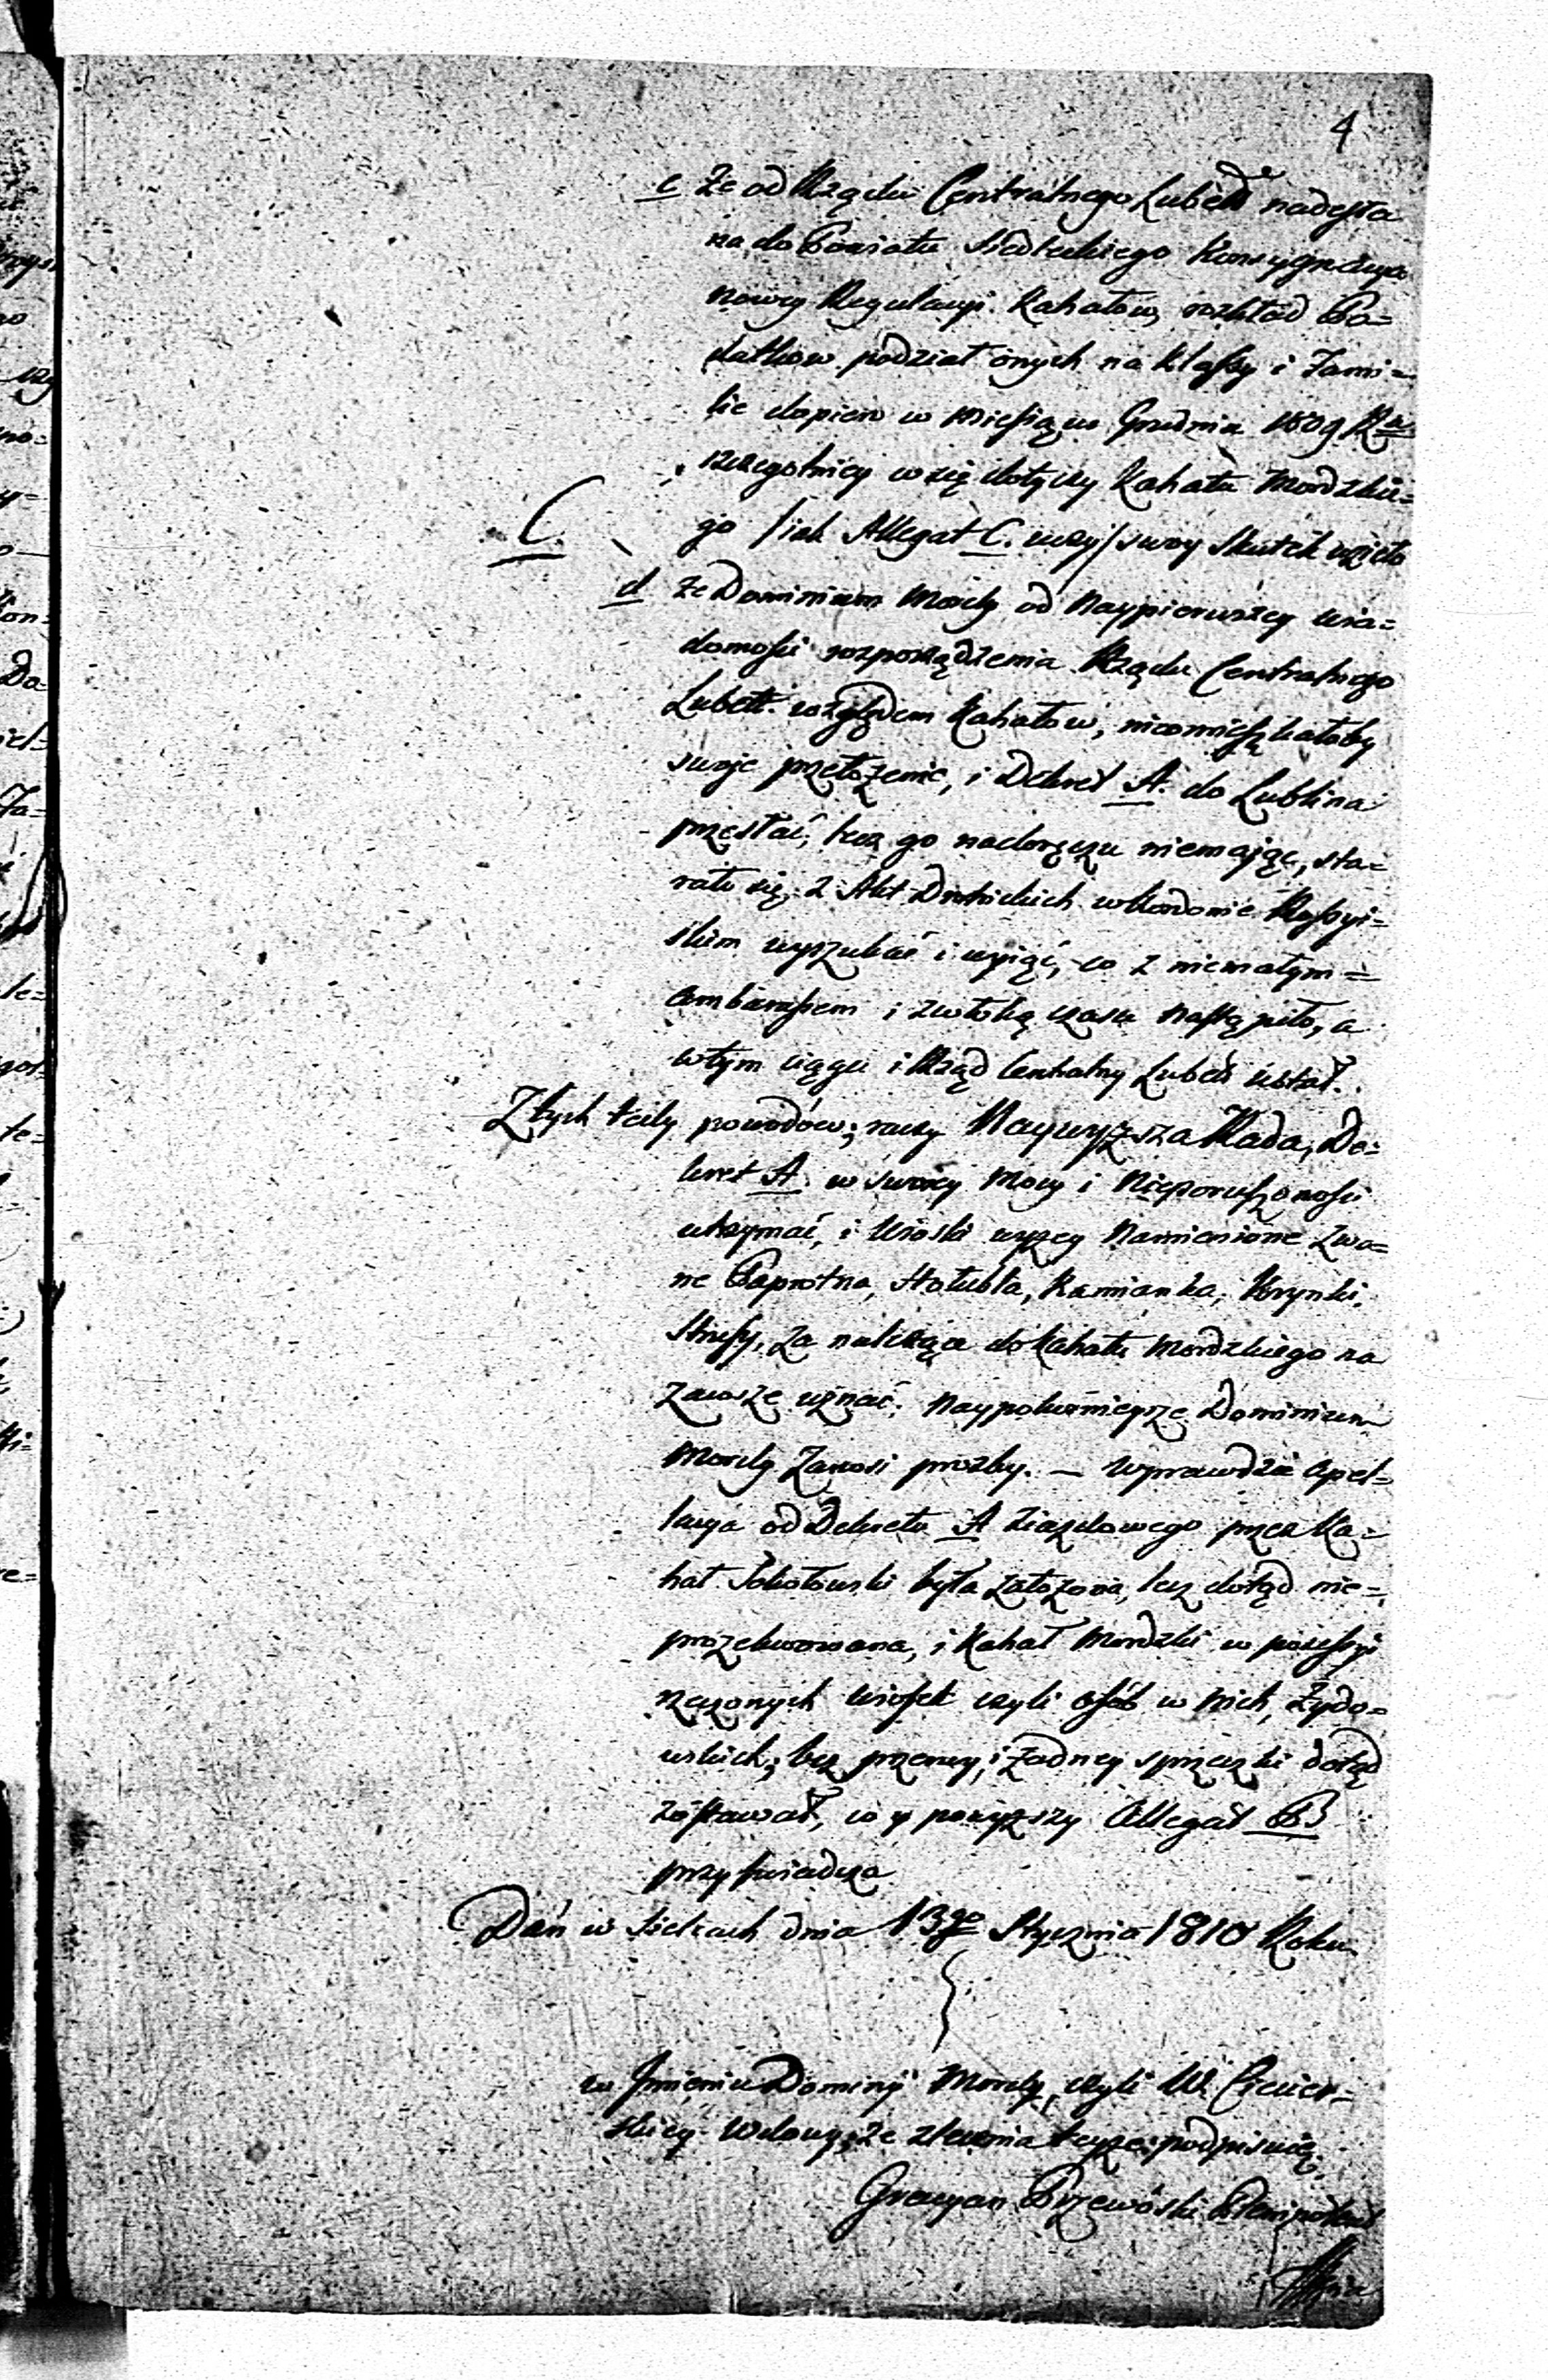 4
c że od Rządu Centralnego Lubell nadesła
na do Powiatu Siedleckiego Konsygnacya
nowey Regulacyi Kahałow, rozkład Po=
datkow podział onych na klassy i Fami=
lie dopiero w Miesiącu Grudnia 1809 Ra
szczegolniey w się dotyczy Kahału Mordzkie=
C. go /iak Allegat C. uczy/ swoy skutek wzięła
d że Dominium Mordy od Naypierwszey wia=
domości rozporządzenia Rządu Centralnego
Lubell. względem Kahałow, nieomieszkałoby
swoje przełożenie, i Dekret A. do Lublina
przesłać, lecz go nadoręczu niemając, sta=
rało się z Akt Drohickich w Kordonie Rossyi=
skim wyszukać i wyiąć, co z niemałym =
ambarassem i zwłoką czasu nastąpiło, a
wtym ciągu i Rząd Centralny Lubell ustał.
Z tych tedy powodów; raczy Naywyższa Rada, De=
kret A. w swoiey Mocy i Nieporuszoności
utrzymać, i Wioski wyżey Namienione zwa=
ne Paprotna, Hołubla, Kamianka, Krynki,
Strusy, za należące do Kahału Mordzkiego na
zawsze uznać; Naypokornieysze Dominium
Mordy zanosi prozby. — Wprawdzie Apel=
lacya od Dekretu A ziazdowego przez Ka=
hał Sokołowski była założona, lecz dotąd nie=
prozekwowana, i Kahał Mordzki w possessyi
rzeczonych Wiosek czyli osób w nich, Żydo=
wskich, bez przerwy, i żadney sprzeczki dotąd
zostawał, co y powyższy Allegat B
przyświadcza
Dan w Siedlcach dnia 13go Stycznia 1810 Roku
w Jmieniu Dominij Mordy, czyli W. Ciecier=
skiey Wdowy, ze zlecenia teyże podpisuię
Gracyan Przewóski Plenipotent